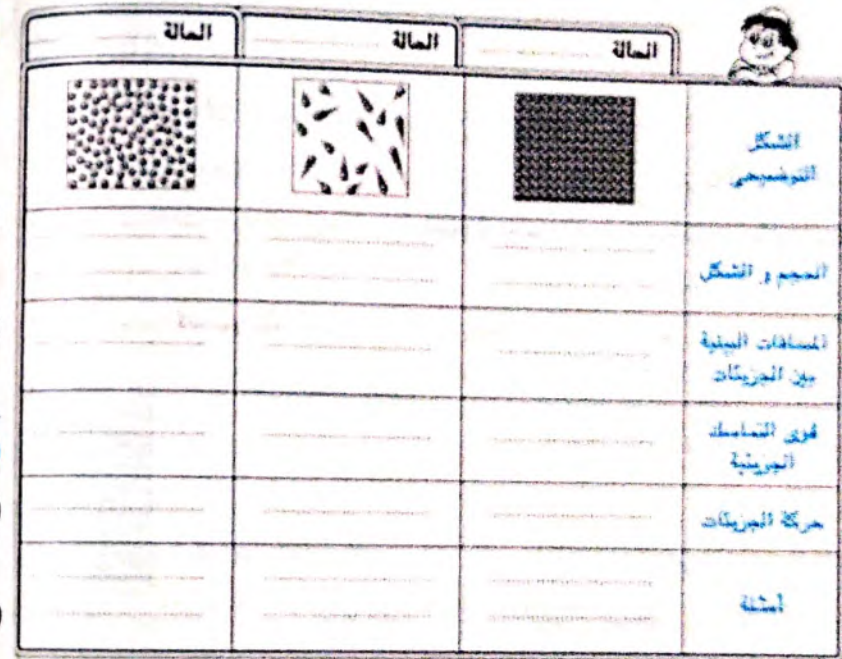 الحالة
الحالة
الحالة
الشكل
التوضيحى
الحجم و الشكل
المسافات البينية
بين الجزيئات
قوى التماسك
الجزيئية
حركة الجزيئات
أمثلة